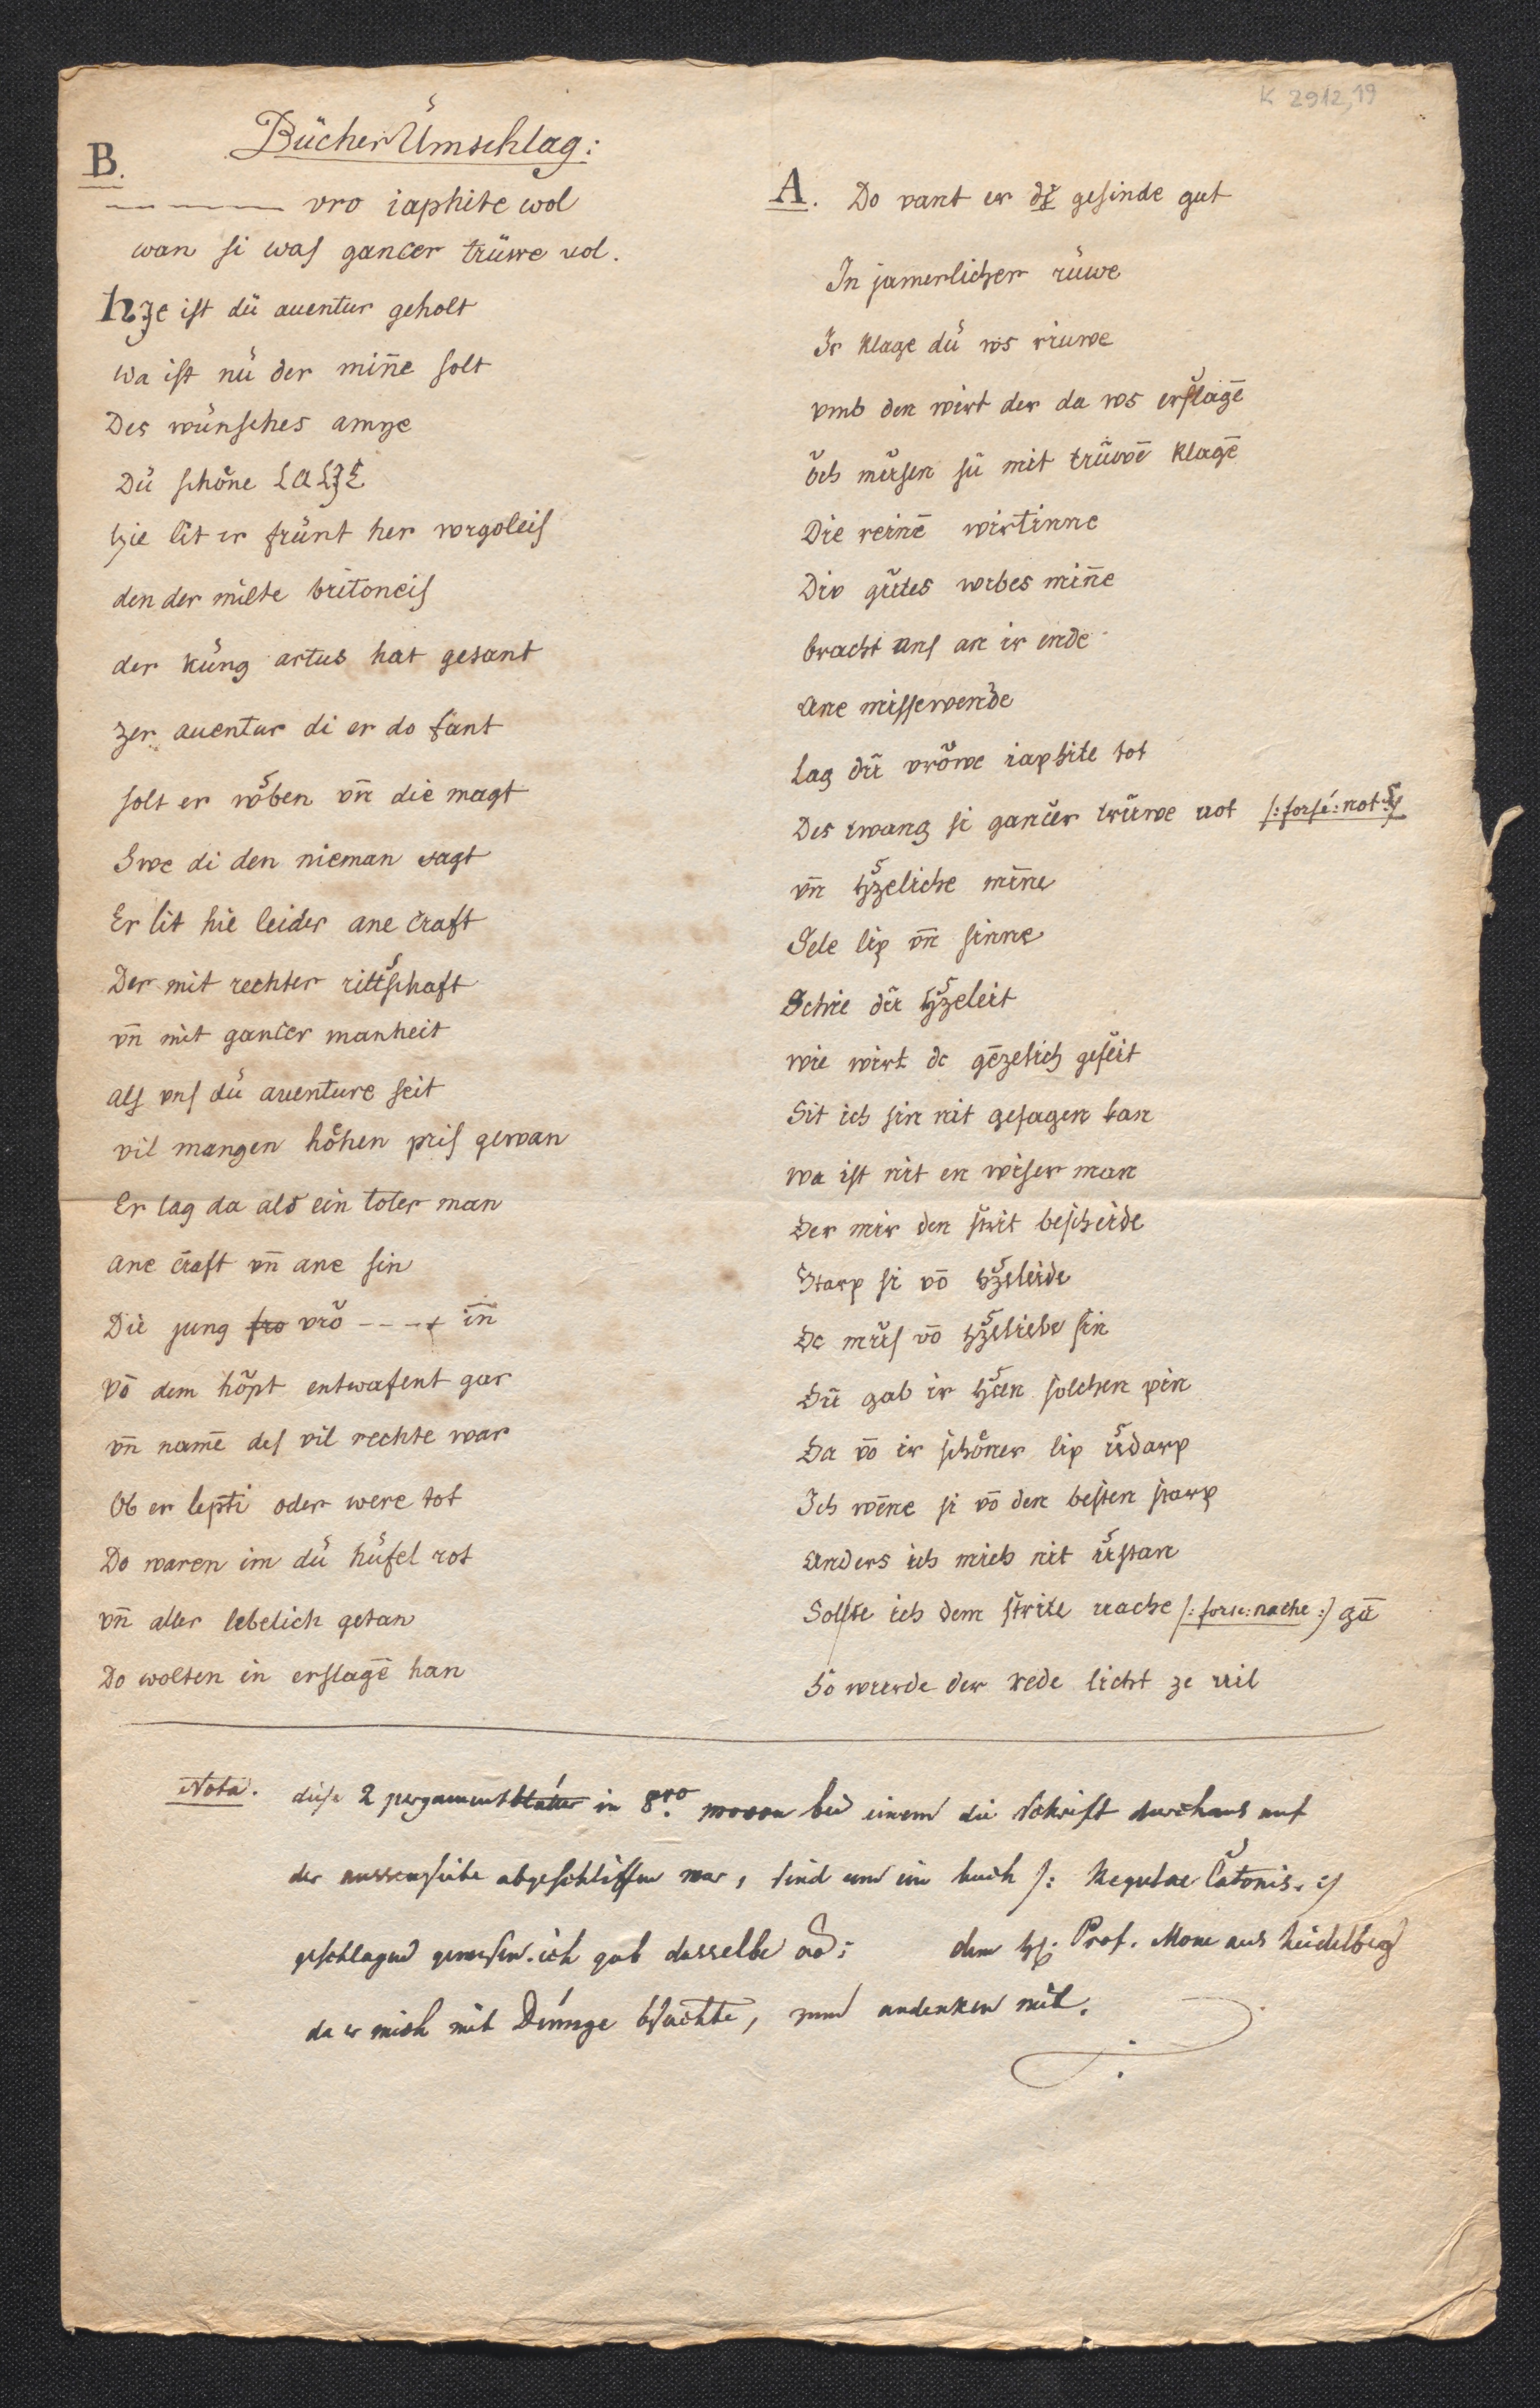 K 2912,19
Bücher Umschlag:
B.
vro iaphite wol
wan si was gancer trüwe vol.
hze ist dü auentur geholt
wa ist nü der miñe solt
Des wünsches amye
Dü schöne
hie lit ir frünt her wigoleis
den der milte britoneis
der küng artus hat gesant
zer auentur di er do fant
solt er wöben vñ die magt
Swe di den nieman sagt
Er lit hie leider ane craft
Der mit rechter rittschaft
vñ mit gancer manheit
als vns dü auenture seit
vil mangen höhen pris gewan
Er lag da als ein toter man
ane craft vñ ane sin
Die jung fro vrö - - - - iñ
vō dem höpt entwafent gar
vñ namē des vil rechte war
Ob er lepti oder were tot
Do waren im dü hüfel rot
vñ aller lebelich getan
Do wolten in erslagē han
A. Do vant er gesinde gut
In jamerlicher rüwe
Ir klage dü ws riuwe
vmb den wirt der da ws erslagē
öch müsen sü mit trüwē klagē
Die reinē wirtinne
Div gůtes wibes miñe
bracht uns an ir ende
ane missewende
Lag dü vröwe iaphite tot
Des twang si gancer trüwe uot /: forsē: not :/
vñ hzeliche mīne
Sele lip vñ sinne
Schie dü hzeleit
wie wirt dc gēzelich geseit
Sit ich sin nit gesagen kan
wa ist nit en wiser man
Der mir den strit bescheide
Starp si vō hzeleide
Dc můs vō hzeliebe sin
Dü gab ir hzen solchen pin
Da vō ir schöner lip üdarp
Ich wēne si vō den besten starp
anders ich mich nit üstan
Sollte ich dem strite uache /: forse: nache :/ gā
So wurde der rede licht ze uil
Nota. diese 2 pergamentblätter in 8vo. wovon bei einem die Schrift durchaus auf
der aussenseite abgeschliffen war, sind um ein buch /: Regulae Catonis. :/
geschlagen gewesen. ich gab dasselbe dem H. Prof. Mone aus heidelberg
da er mich mit Dümge bsuchte, zum andenken mit.